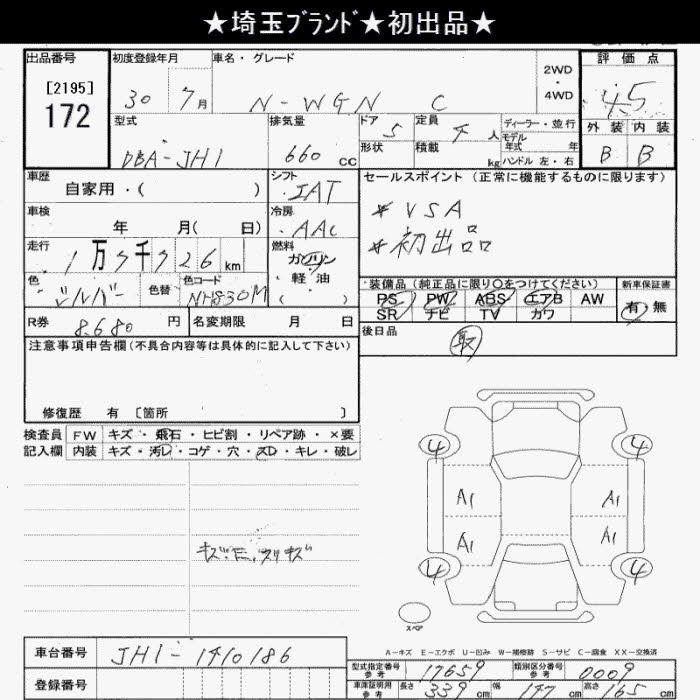 ★埼玉ﾌﾞﾗﾝﾄﾞ★初出品★
出品番号 初度登録年月 車名・グレード 評価点
[2195] 30 7月 N-WGN C 2WD・4WD 4.5
172
型式 排気量 ドア 5 定員 4人 ディーラー・並行 外装 内装
DBA-JH1 660cc 形状 積載 kg モデル年式 年 B B
ハンドル 左・右
車歴 シフト セールスポイント(正常に機能するものに限ります)
自家用・( ) IAT
車検 冷房 *VSA
年 月( 日) AAC *初出品
走行 燃料
1万7千726km ガソリン
軽油
( )
色 色替 色コード 装備品(純正品に限り○をつけてください) 新車保証書
シルバー NH830M PS PW ABS エアB AW 有・無
SR ナビ TV カワ
R券 8,680円 名変期限 月 日 後日品
取
注意事項申告欄(不具合内容等は具体的に記入して下さい)
修復歴 有 [箇所 ]
検査員 FW キズ・飛石・ヒビ割・リペア跡・×要
記入欄 内装 キズ・汚レ・コゲ・穴・スD・キレ・破レ
4 4
A1 A1
A1 A1
4 4
スペア
A-キズ E-エクボ U-凹み W-補修跡 S-サビ C-腐食 XX-交換済
車台番号 JH1-1410186
登録番号
型式指定番号 参考 17659 類別区分番号 参考 0009
車庫証明用 参考 長さ 339cm 幅 147cm 高さ 165cm